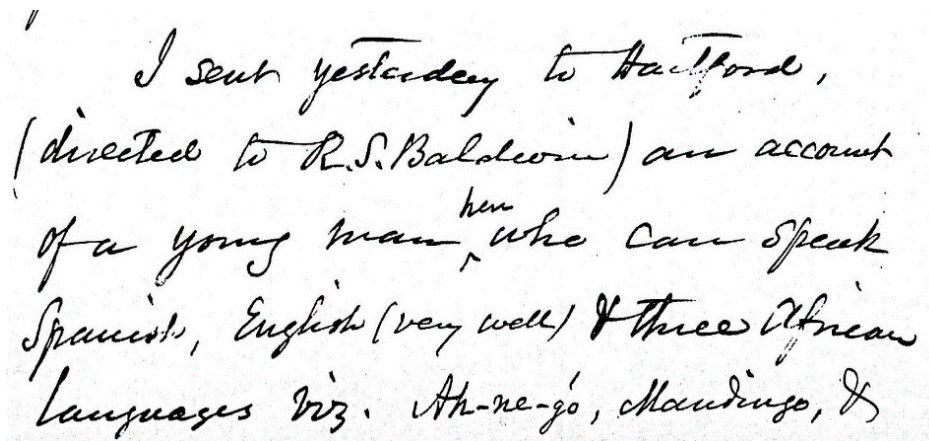 I sent yesterday to Hartford,
(directed to R.S. Baldwin) an account
of a young man here who can speak
Spanish, English (very well) & three African
languages viz. Ah-ne-gó, Mandingo, &